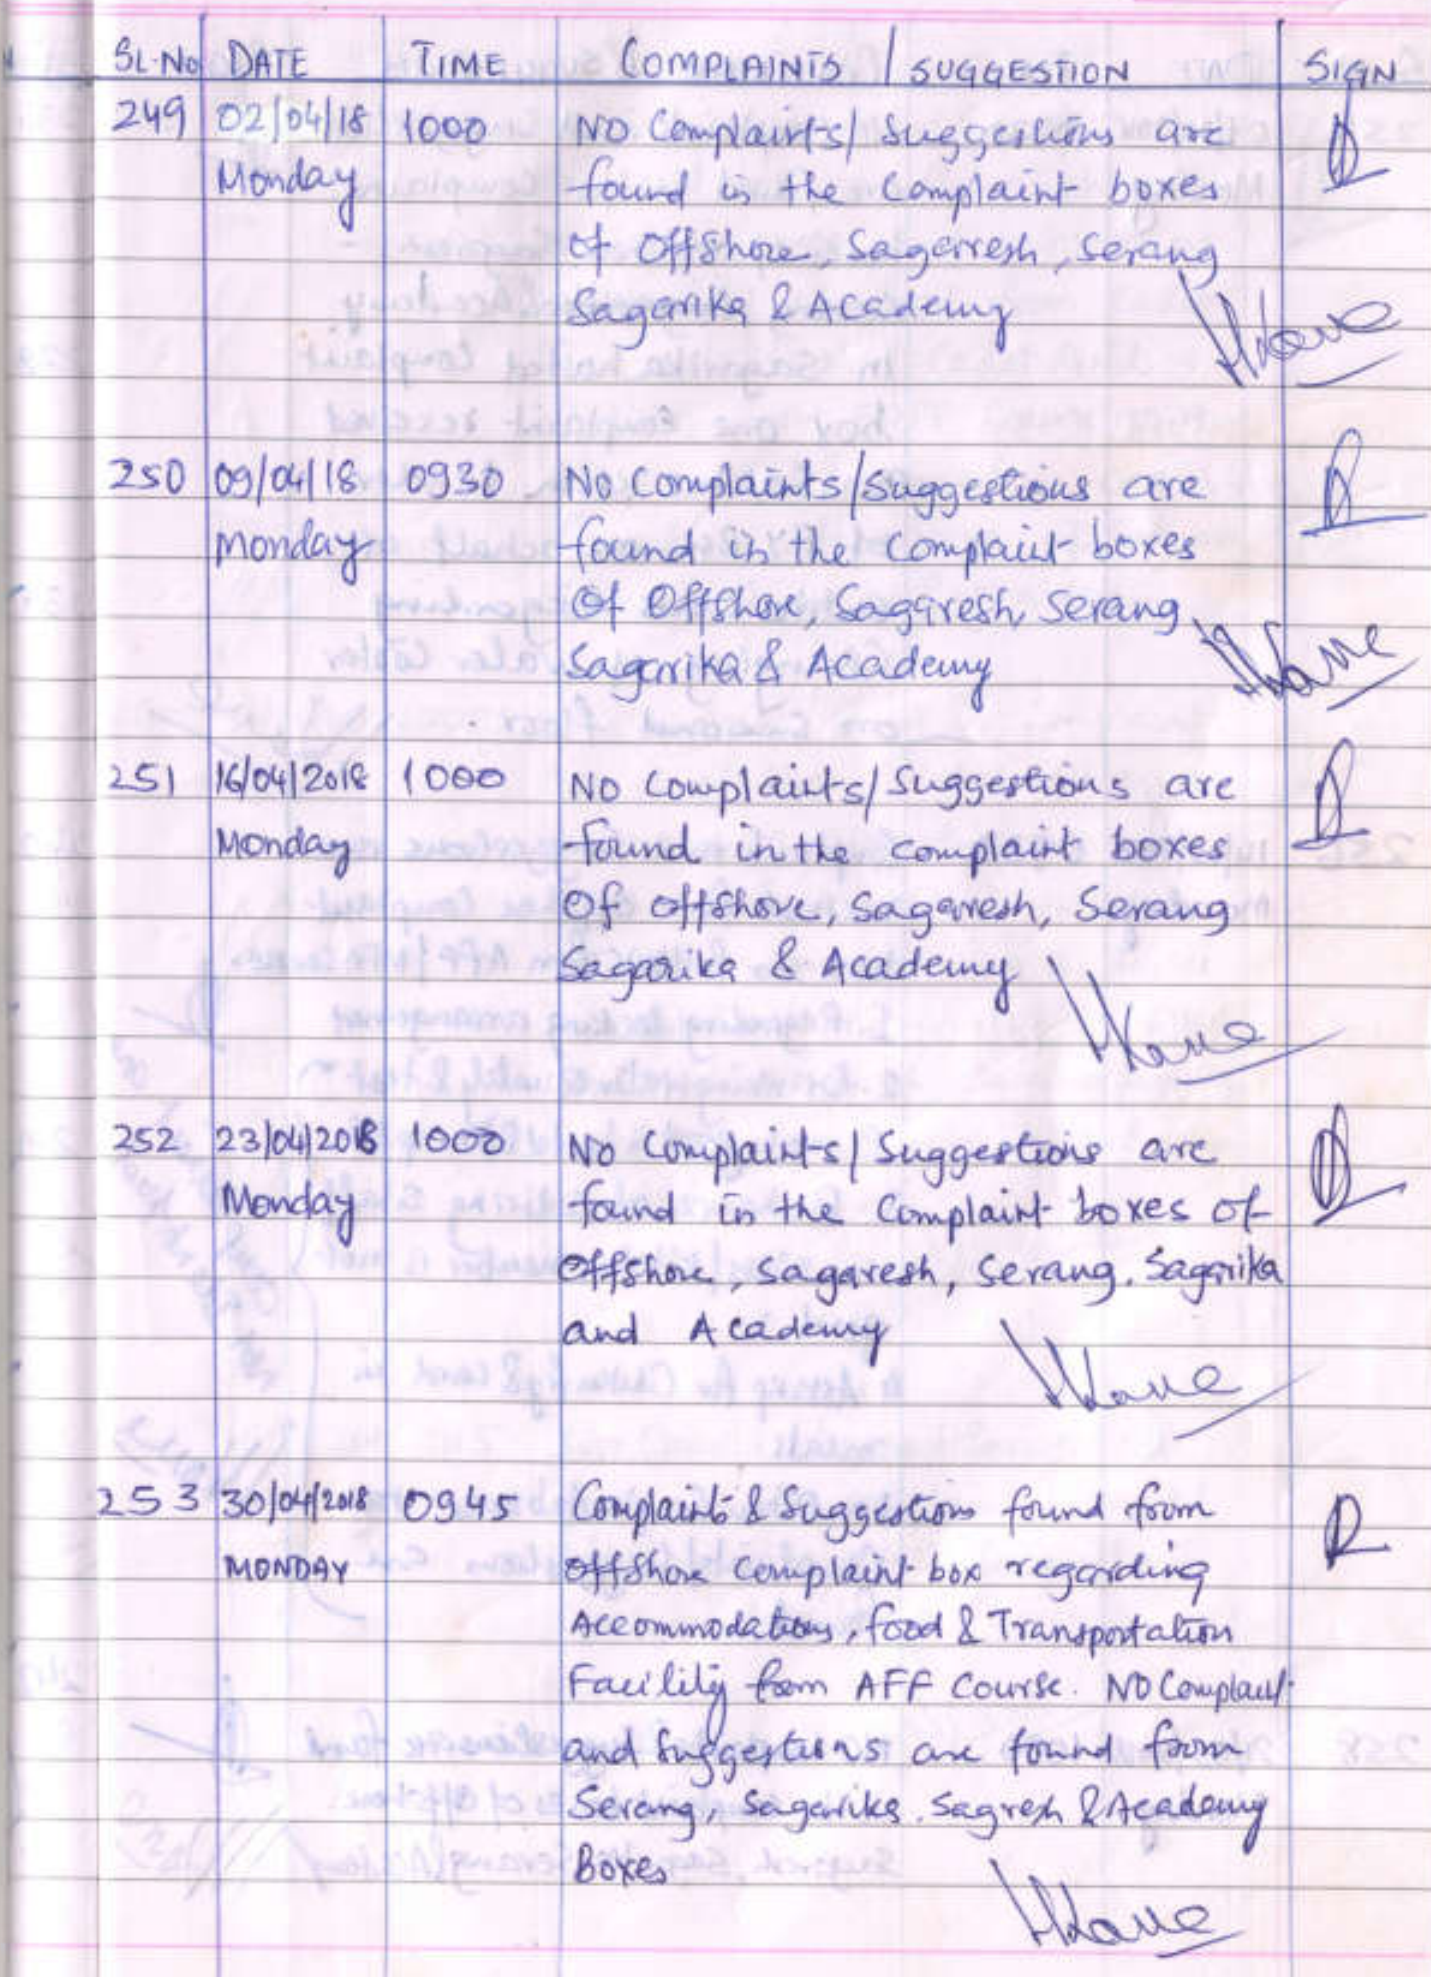 SL.No DATE TIME COMPLAINTS / SUGGESTION SIGN
249 02/04/18 1000 NO Complaints/Suggestions are
Monday found in the Complaint boxes
of Offshore, Sagaresh, Serang
Sagarika & Academy
250 09/04/18 0930 No Complaints/Suggestions are
Monday found in the Complaint boxes
Of Offshore, Sagaresh, Serang
Sagarika & Academy
251 16/04/2018 1000 NO Complaints/Suggestions are
Monday found in the complaint boxes
Of offshore, Sagaresh, Serang
Sagarika & Academy
252 23/04/2018 1000 No Complaints/Suggestions are
Monday found in the Complaint boxes of
Offshore, Sagaresh, Serang, Sagarika
and Academy
253 30/04/2018 0945 Complaint & Suggestions found from
MONDAY Offshore Complaint box regarding
Accommodations, food & Transportation
Facility from AFF Course. NO Complaint
and Suggestions are found from
Serang, Sagarika, Sagresh & Academy
Boxes